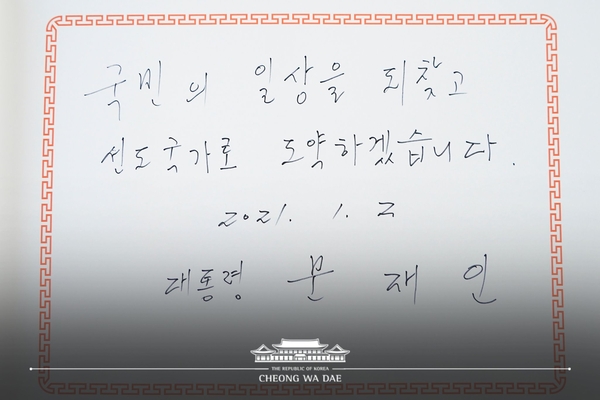 국민의 일상을 되찾고
선도국가로 도약하겠습니다.
2021. 1. 2
대통령 문 재 인
THE REPUBLIC OF KOREA
CHEONG WA DAE